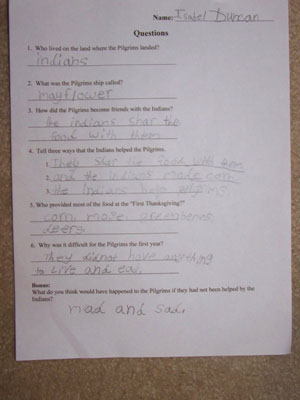 Name: Isabel Duncan
Questions
1. Who lived on the land where the Pilgrims landed?
indians
2. What was the Pilgrims ship called?
mayflower
3. How did the Pilgrims become friends with the Indians?
the indians shar the
food with them
4. Tell three ways that the Indians helped the Pilgrims.
1. They shar the food with them
2. and the indians made corn
3. the indians help
5. Who provided most of the food at the "First Thanksgiving?"
corn,
deers
6. Why was it difficult for the Pilgrims the first year?
They did not have anything
to Live and eat.
Bonus:
What do you think would have happened to the Pilgrims if they had not been helped by the
Indians?
mad and sad.